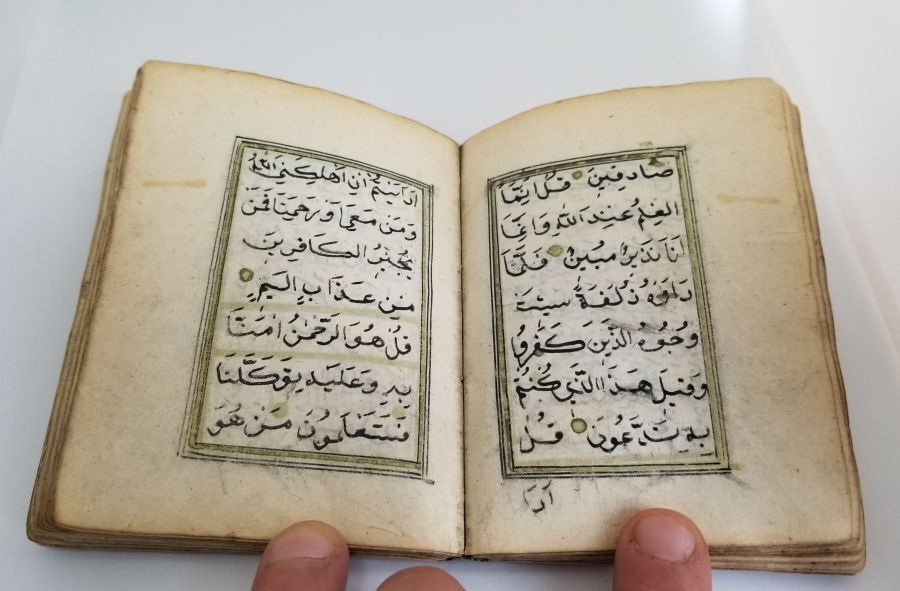 صَادِقِينَ قُلْ اِنَّمَا
الْعِلْمُ عِنْدَ اللّٰهِ وَاِنَّمَا
اَنَا نَذِيرٌ مُبِينٌ فَلَمَّا
رَاَوْهُ زُلْفَةً سِيئَتْ
وُجُوهُ الَّذِينَ كَفَرُوا
وَقِيلَ هٰذَا الَّذِي كُنْتُمْ
بِهِ تَدَّعُونَ قُلْ
اَرَا
اَرَاَيْتُمْ اِنْ اَهْلَكَنِيَ اللّٰهُ
وَمَنْ مَعِيَ اَوْ رَحِمَنَا فَمَنْ
يُجِيرُ الْكَافِرِينَ
مِنْ عَذَابٍ اَلِيمٍ
قُلْ هُوَ الرَّحْمٰنُ اٰمَنَّا
بِهِ وَعَلَيْهِ تَوَكَّلْنَا
فَسَتَعْلَمُونَ مَنْ هُوَ